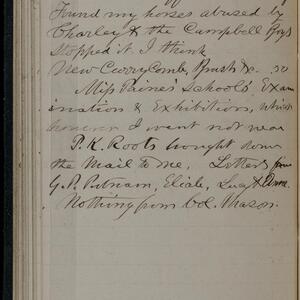 Found my horses abused by
Charley & the Campbell Boys
Stopped it I think
New Curry Comb, Brush &c. 50
Miss Paine's School's Exam
ination & Exhibition, which
however I went not near
P. K. Roots brought down
the Mail to me, Letters from
G. P. Putnam, Eliab, Lucy & Anne
Nothing from Col. Mason.